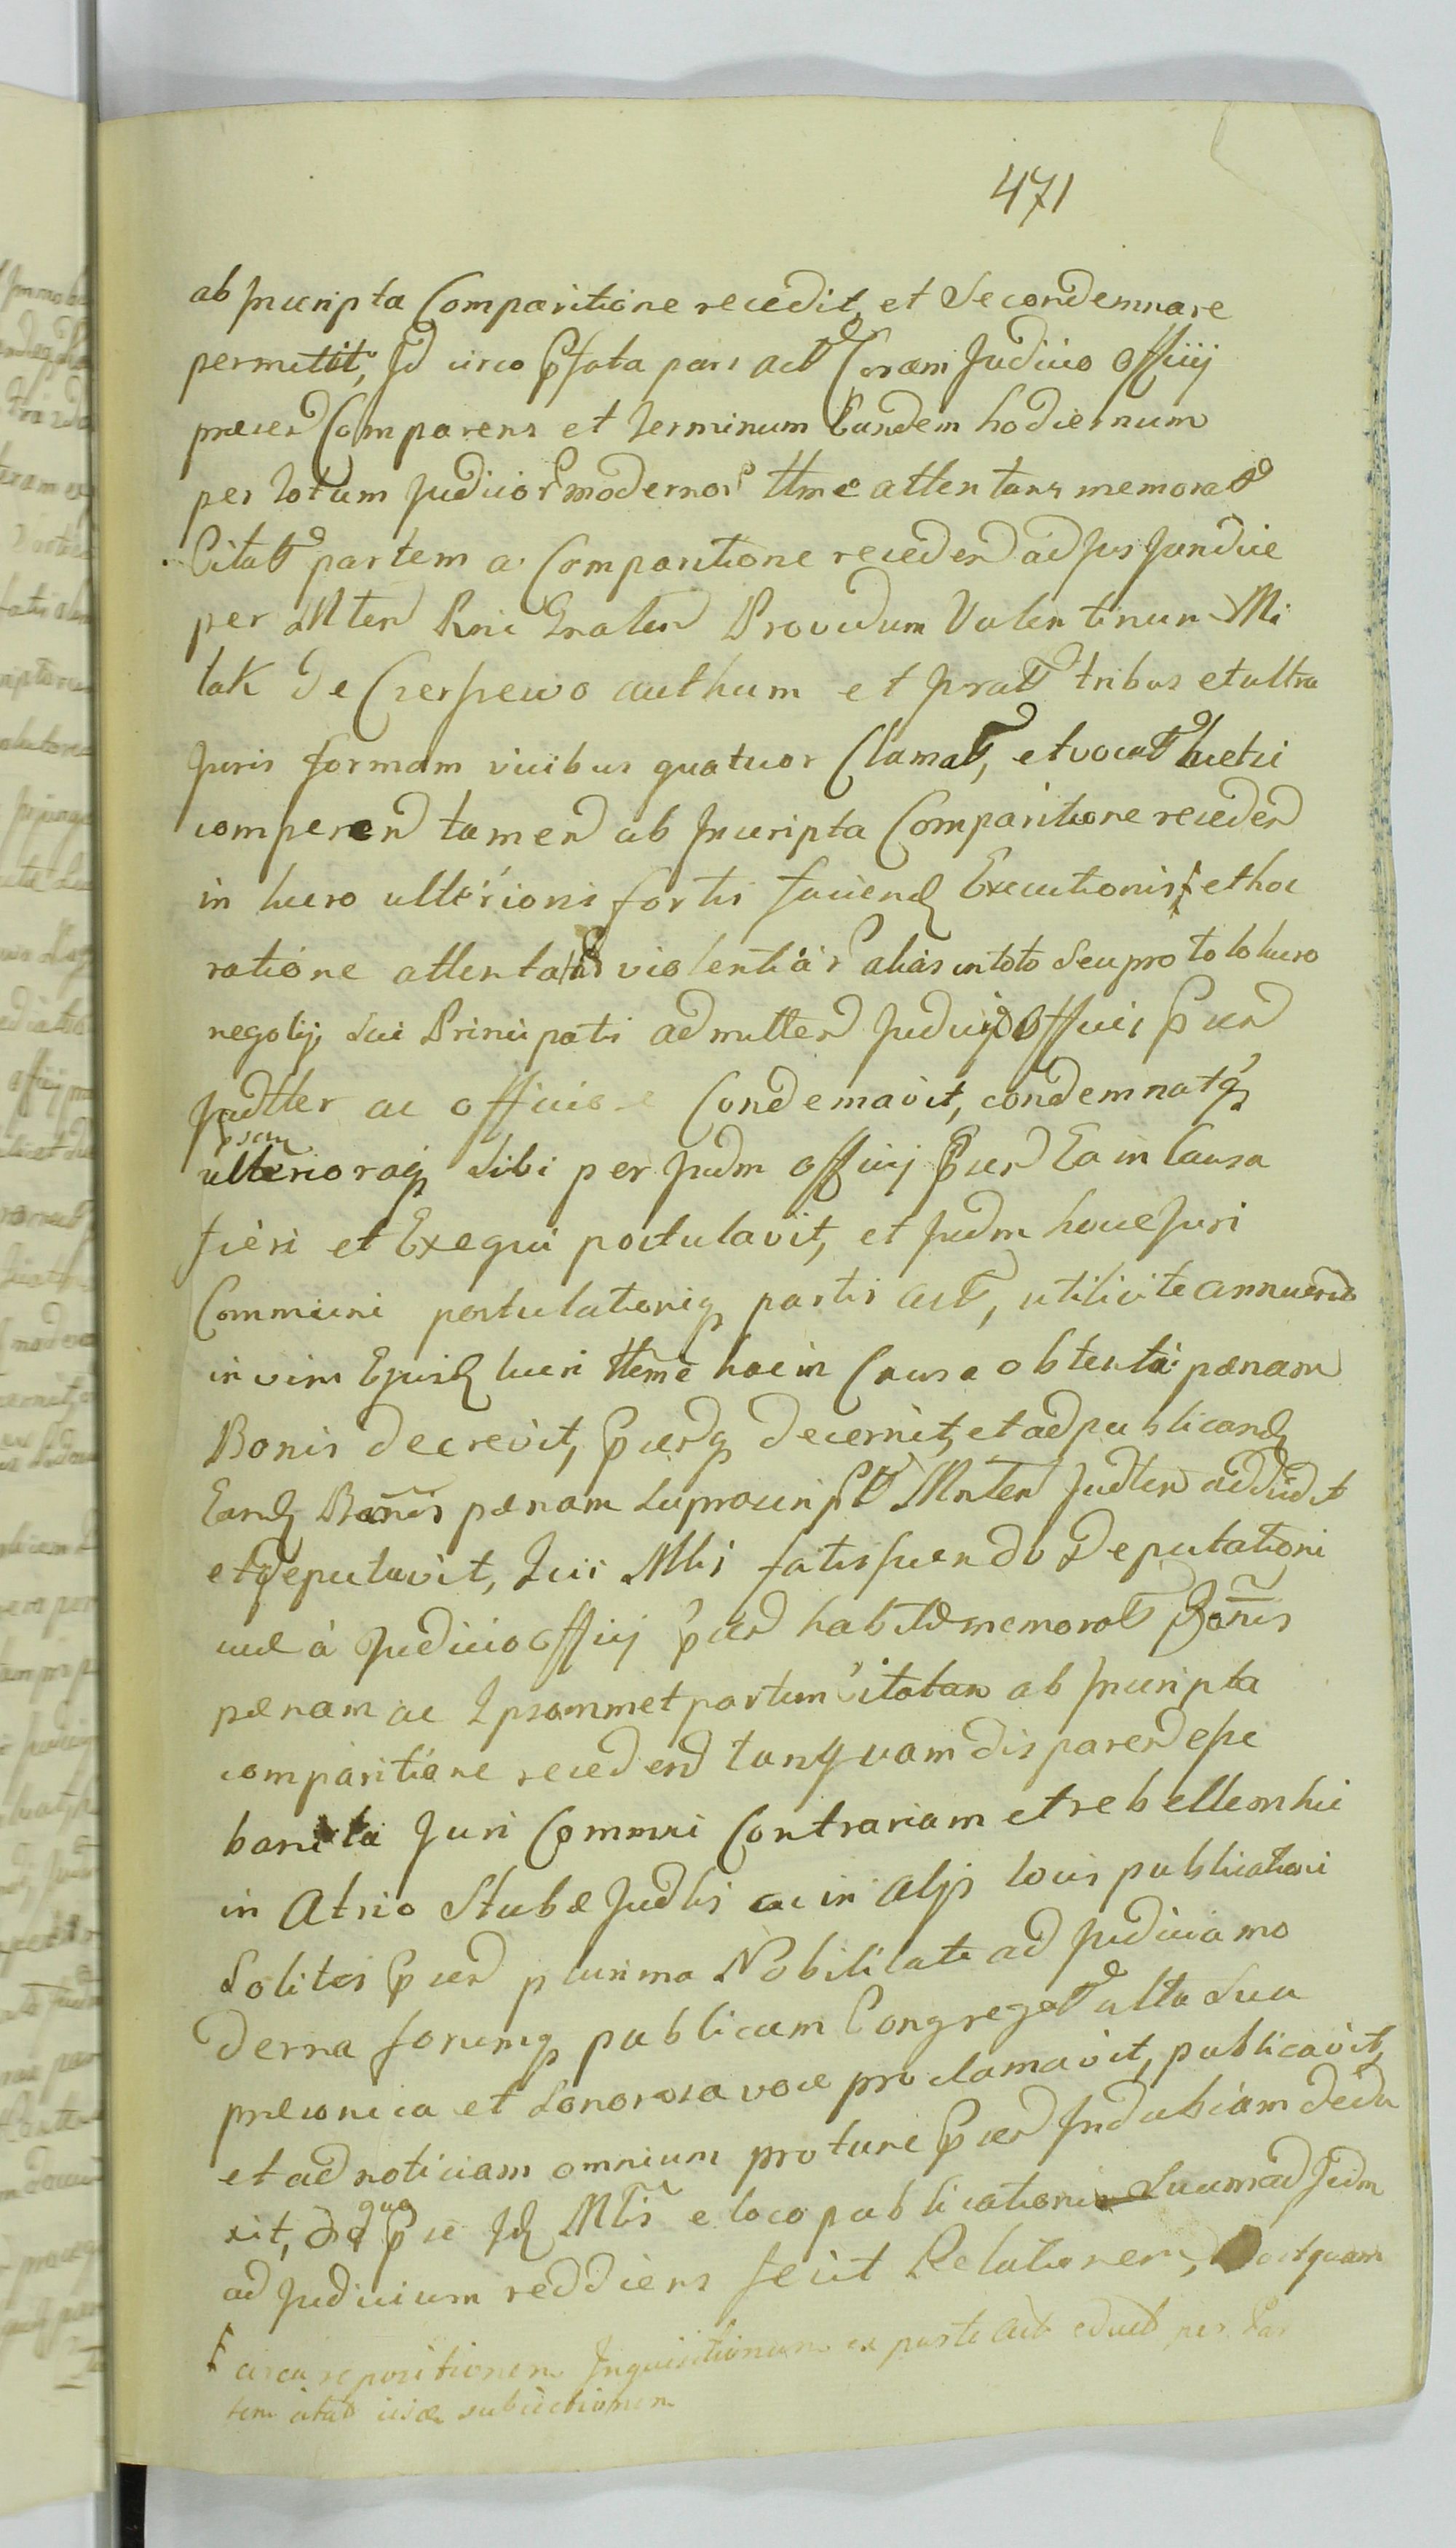 471
ab Inscripta Comparitione recedit, et Se condemnare
permittit, Id circo Pfata pars act Coram Judicio Officij
præsen Comparens et terminum Eundem hodiernum
per totum Judicior modernor ttme attentans memorat
Citat partem a Comparitione receden ad Jus Jundice
per Mlten Rni Gnalen Providum Valentinum Mi
lak de Czerssewo authum et jurat tribus et ultra
Juris formam vicibus quatuor Clamat, et vocat luctui
comparen tamen ab Inscripta Comparitione receden
in lucro ulterioris fortis faciend Executionis et hoc
ratione attentatar violentiar alias in toto Seu pro toto lucro
negotij sui Principalis admitten Judicij Officij Psen
Judtler ac officiose Condemnavit, condemnatq
psam
ulterioraq Sibi per Judm officij Psen Ea in Causa
fieri et Exequi postulavit, et Judm hocce Juri
Communi postulationiq partis act, utilite annuendo
in vim Ejusd lucri ttme hac in Causa obtenti pænam
Bonis decrevit, Psenq decernit, et ad publicand
Eand Bannis pænam suprascript Mnten Judlen addidit
et deputavit, Qui Mlis satisfaciendo Deputationi
suæ à Judicio officij Psen habitæ memorat Bannis
pænam ac Ipsammet partem citatam ab Inscripta
comparitione receden tanquam disparen esse
banita Juri Commni Contrariam et rebellem hic
in Atrio Stubæ Judlis ac in alijs locis publicationi
Solitis Psen plurima Nobilitate ad Judicia mo
derna forumq publicum Congregat alta Sua
præconica et Sonorosa voce proclamavit, publicavit,
et ad noticiam omnium pro tunc Psen Indubiam dedu
xit, de qua Pse Id Mlis e loco publicationis Suum ad Judm
ad Judicium reddiens fecit Relationem, Postquam
circa repositionem Inquisitionum ex parte act educt per Par
tem citat subiectionem